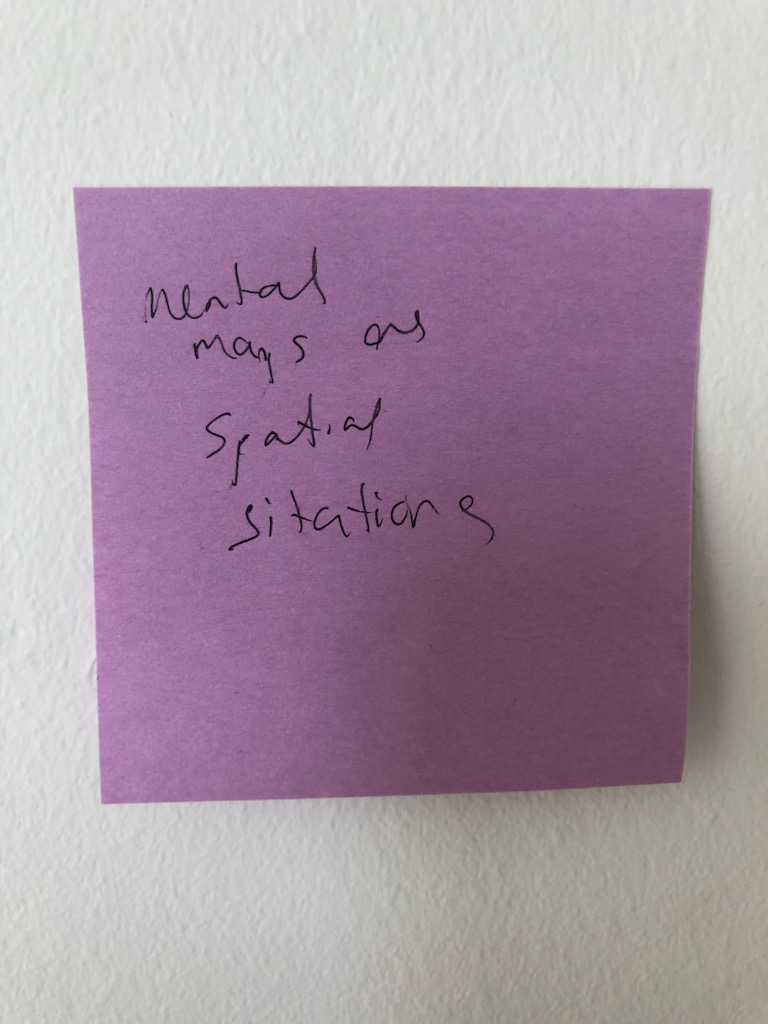 mental
maps as
spatial
sitations